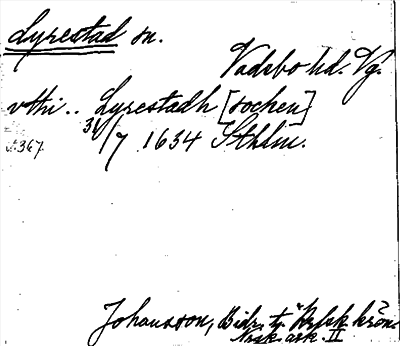 Lyrestad sn.
Vadsbo hd. Vg.
vthi .. Lyrestadh [sochen]
31/7 1634 Sthlm.
s. 367.
Johansson, Bidr. t.